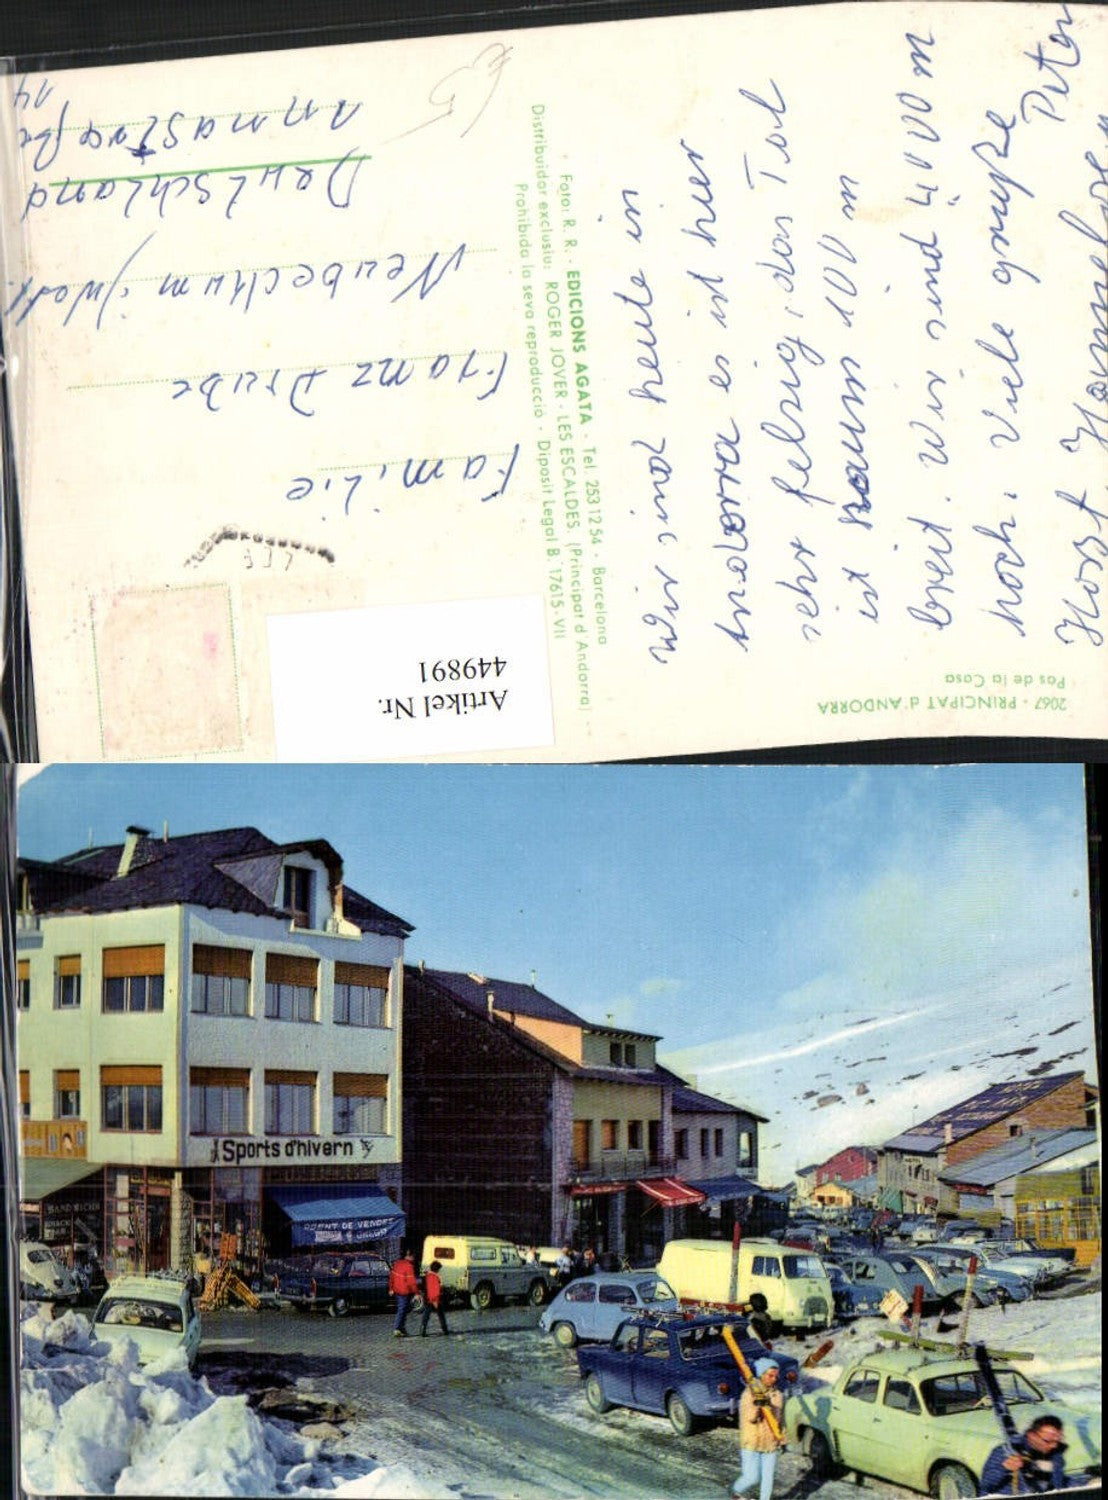 2067 - PRINCIPAT d'ANDORRA
Pas de la Casa
wir sind heute in
Andorra es ist hier
sehr felsig, das Tal
ist kaum 100 m
breit. Wir sind 4000 m
hoch. Viele Grüße
Horst Hannelore Peter
EDICIONS AGATA - Tel. 253 12 54 - Barcelona
Foto: R. R.
Distribuidor exclusiu: ROGER JOVER - LES ESCALDES. (Principat d'Andorra)
Prohibida la seva reproducció - Dipòsit Legal B. 17615-VII
Familie
Franz Drube
Neubeckum i/Westf.
Deutschland
Annastraße
14
Artikel Nr.
449891
Sports d'hivern